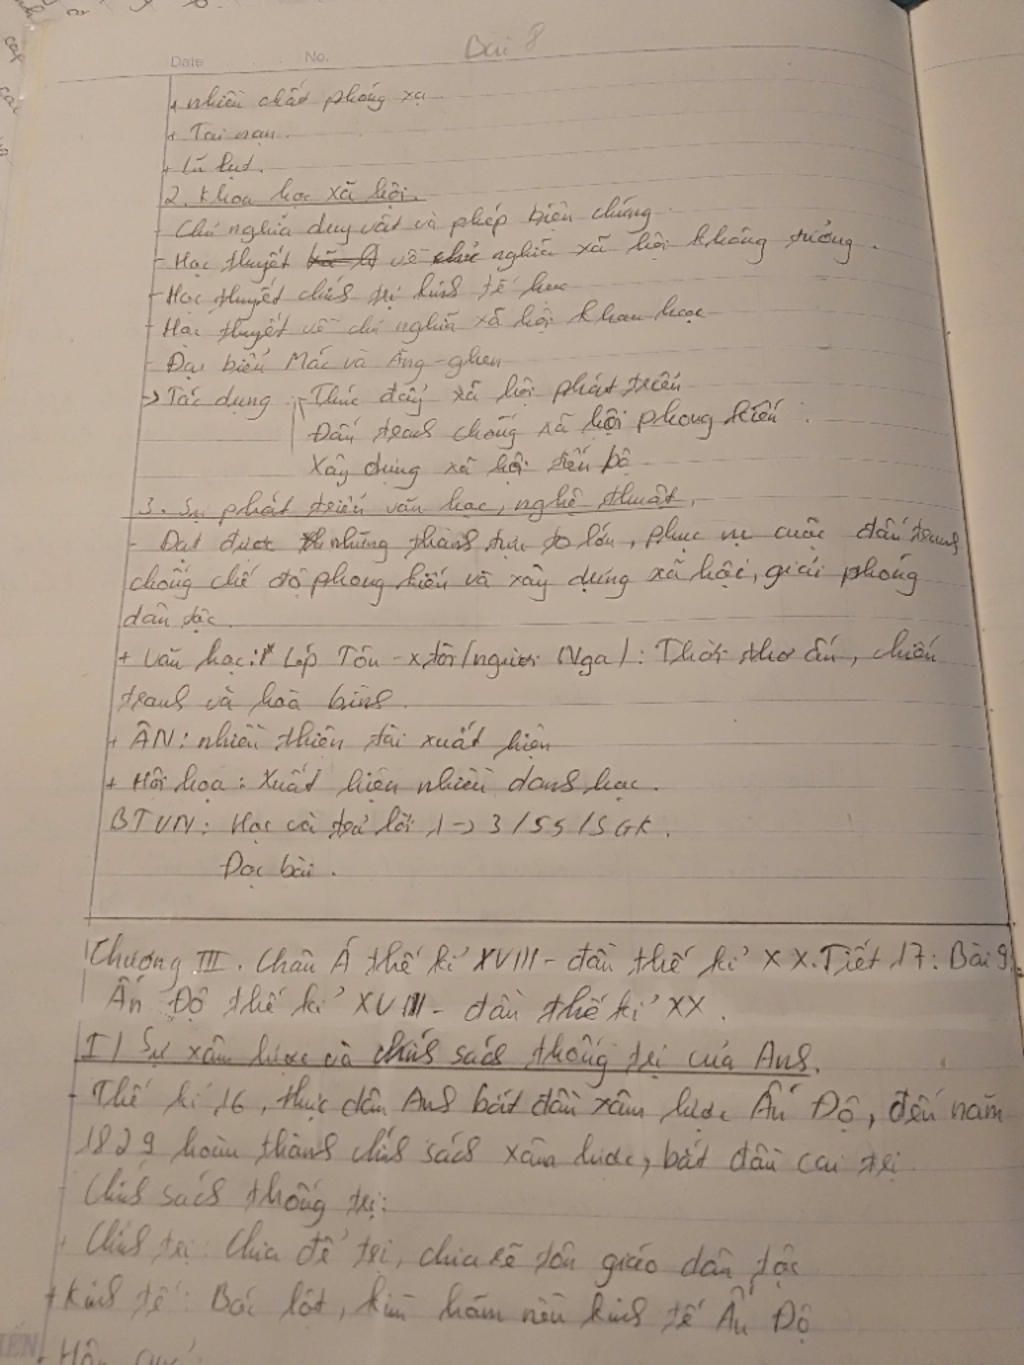 Bài 8
Date No.
+ nhiều chất phóng xạ
+ Tai nạn.
+ Lũ lụt.
2. Khoa học xã hội.
- Chủ nghĩa duy vật và phép biện chứng
- Học thuyết về chủ nghĩa xã hội không tưởng.
- Học thuyết chính trị kinh tế học
- Học thuyết về chủ nghĩa xã hội khoa học
- Đại biểu Mác và Ăng-ghen
-> Tác dụng : Thúc đẩy xã hội phát triển
Đấu tranh chống xã hội phong kiến.
Xây dựng xã hội tiến bộ
3. Sự phát triển văn học, nghệ thuật.
- Đạt được những thành tựu to lớn, phục vụ cuộc đấu tranh
chống chế độ phong kiến và xây dựng xã hội, giải phóng
dân tộc.
+ Văn học: Lép Tôn-xtôi (người Nga): Thời thơ ấu, chiến
tranh và hoà bình.
+ ÂN: nhiều thiên tài xuất hiện
+ Hội họa: Xuất hiện nhiều danh họa.
BTVN: Học và trả lời 1->3/55/SGK.
Đọc bài.
Chương III. Châu Á thế kỉ XVIII - đầu thế kỉ XX. Tiết 17: Bài 9:
Ấn Độ thế kỉ XVIII - đầu thế kỉ XX.
I/ Sự xâm lược và chính sách thống trị của Anh.
- Thế kỉ 16, thực dân Anh bắt đầu xâm lược Ấn Độ, đến năm
1829 hoàn thành chính sách xâm lược, bắt đầu cai trị
- Chính sách thống trị:
+ Chính trị: Chia để trị, chia rẽ tôn giáo dân tộc
+ Kinh tế: Bóc lột, kìm hãm nền kinh tế Ấn Độ